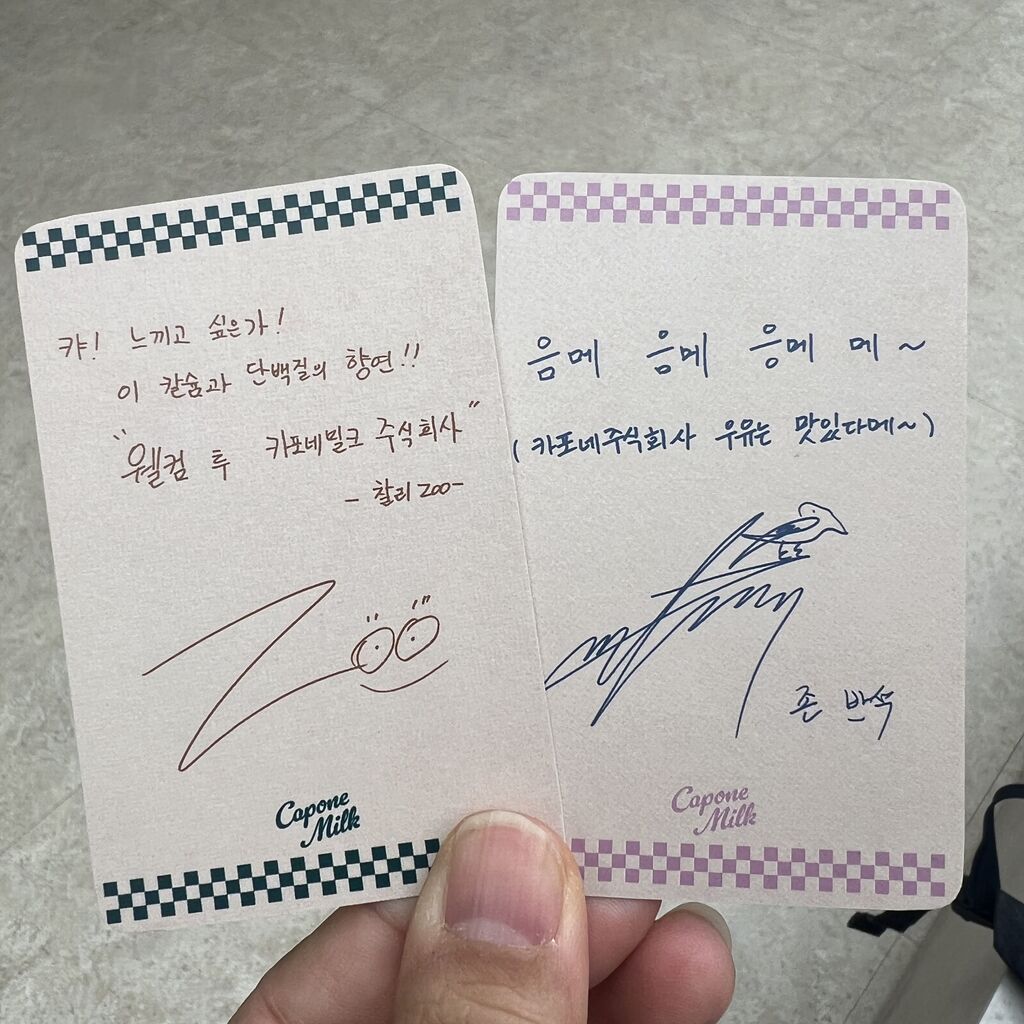 캬! 느끼고 싶은가!
이 칼슘과 단백질의 향연!!
"웰컴 투 카포네밀크 주식회사"
- 찰리 zoo-
Zoo
Capone
Milk
음메 음메 응메 메~
(카포네주식회사 우유는 맛있다메~)
존 반석
Capone
Milk